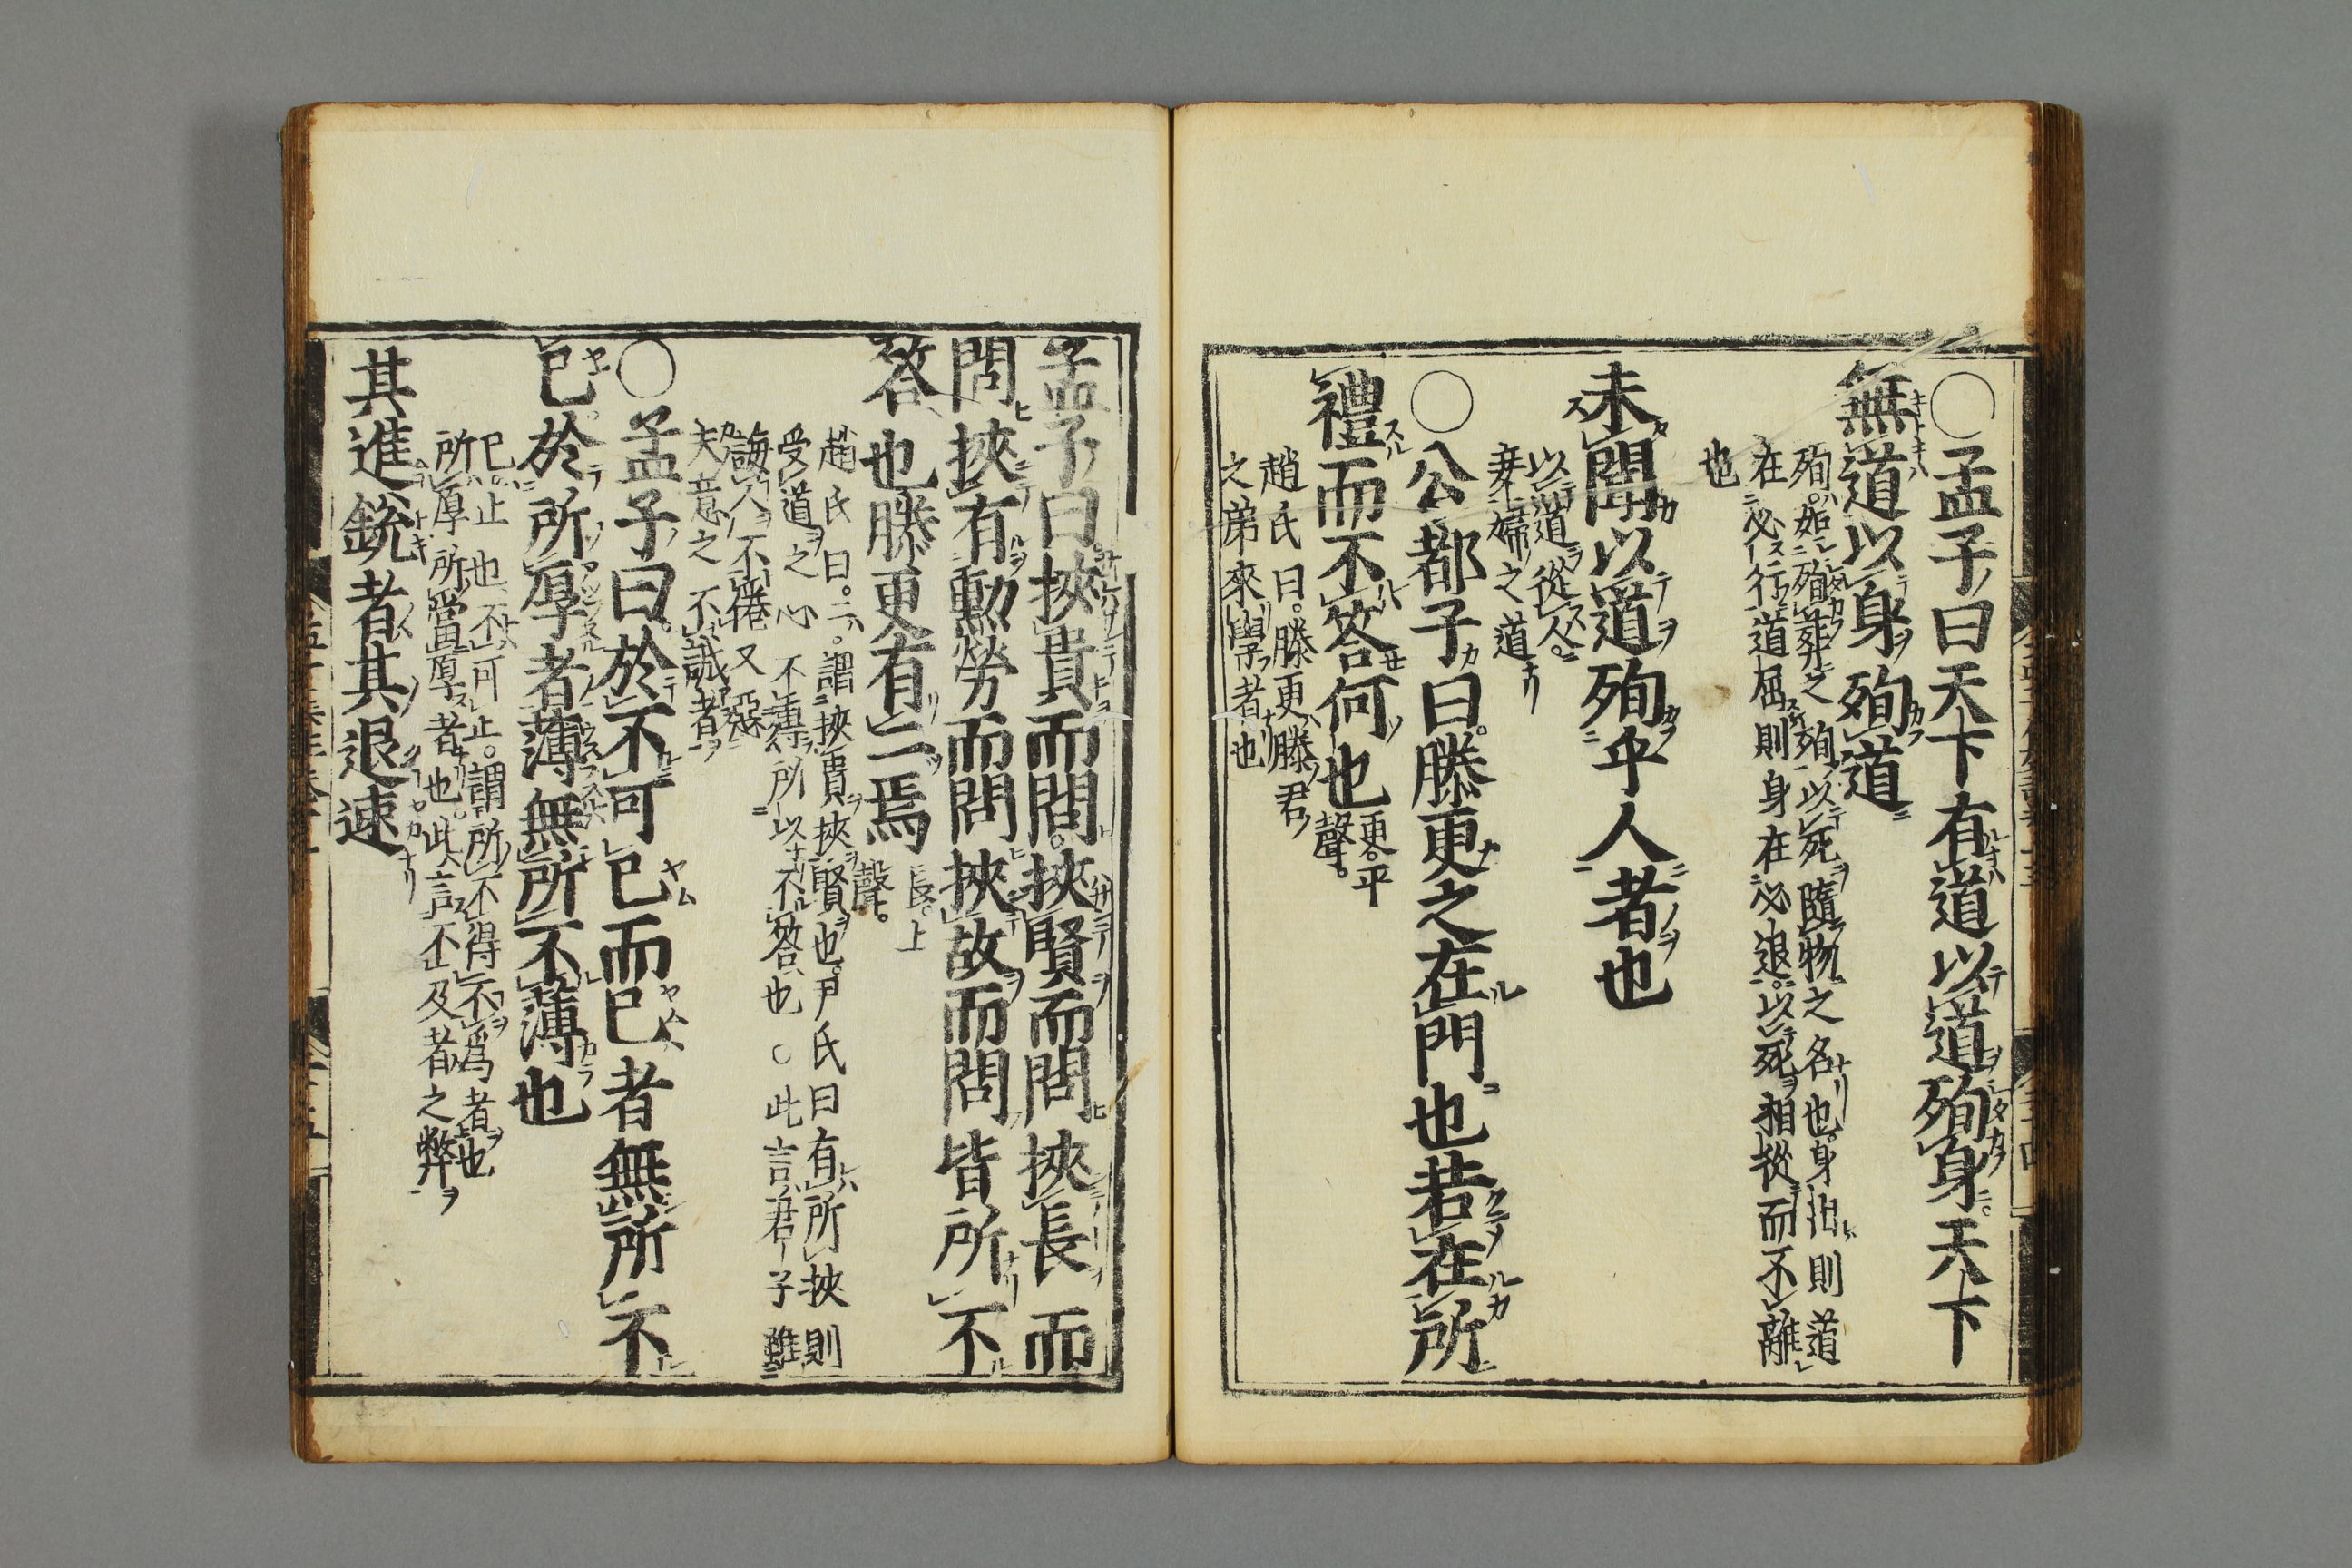 ○孟子曰天下有道以道殉身天下
無道以身殉道
殉如殉葬之殉以死隨物之名也身出則道
在必行道屈則身在必退以死相從而不離
也
未聞以道殉乎人者也
以道從人
妾婦之道
○公都子曰滕更之在門也若在所
禮而不答何也
更平
聲
趙氏曰滕更滕君
之弟來學者也
孟子曰挾貴而問挾賢而問挾長而
問挾有勳勞而問挾故而問皆所不
答也滕更有二焉
長上
聲
趙氏曰二謂挾貴挾賢也尹氏曰有所挾則
受道之心不專所以不答也○此言君子雖
誨人不倦又惡
夫意之不誠者
○孟子曰於不可已而已者無所不
已於所厚者薄無所不薄也
已止也不可止謂所不得不爲者也
所厚所當厚者也此言不及者之弊
其進銳者其退速